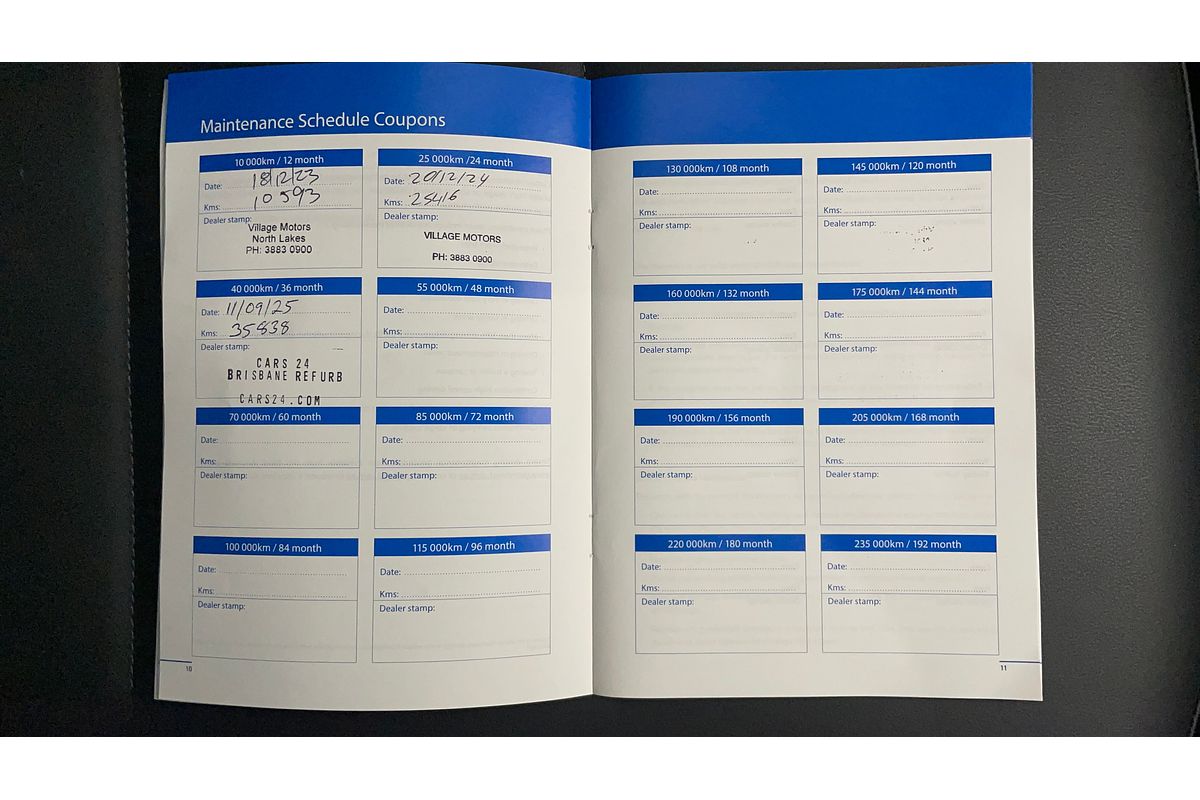 Maintenance Schedule Coupons
10 000km / 12 month
Date: 18/12/23
Kms: 10593
Dealer stamp:
Village Motors
North Lakes
PH: 3883 0900
25 000km /24 month
Date: 20/12/24
Kms: 25416
Dealer stamp:
VILLAGE MOTORS
PH: 3883 0900
40 000km / 36 month
Date: 11/09/25
Kms: 35838
Dealer stamp:
CARS 24
BRISBANE REFURB
CARS24.COM
55 000km / 48 month
Date:
Kms:
Dealer stamp:
70 000km / 60 month
Date:
Kms:
Dealer stamp:
85 000km / 72 month
Date:
Kms:
Dealer stamp:
100 000km / 84 month
Date:
Kms:
Dealer stamp:
115 000km / 96 month
Date:
Kms:
Dealer stamp:
10
130 000km / 108 month
Date:
Kms:
Dealer stamp:
145 000km / 120 month
Date:
Kms:
Dealer stamp:
160 000km / 132 month
Date:
Kms:
Dealer stamp:
175 000km / 144 month
Date:
Kms:
Dealer stamp:
190 000km / 156 month
Date:
Kms:
Dealer stamp:
205 000km / 168 month
Date:
Kms:
Dealer stamp:
220 000km / 180 month
Date:
Kms:
Dealer stamp:
235 000km / 192 month
Date:
Kms:
Dealer stamp:
11